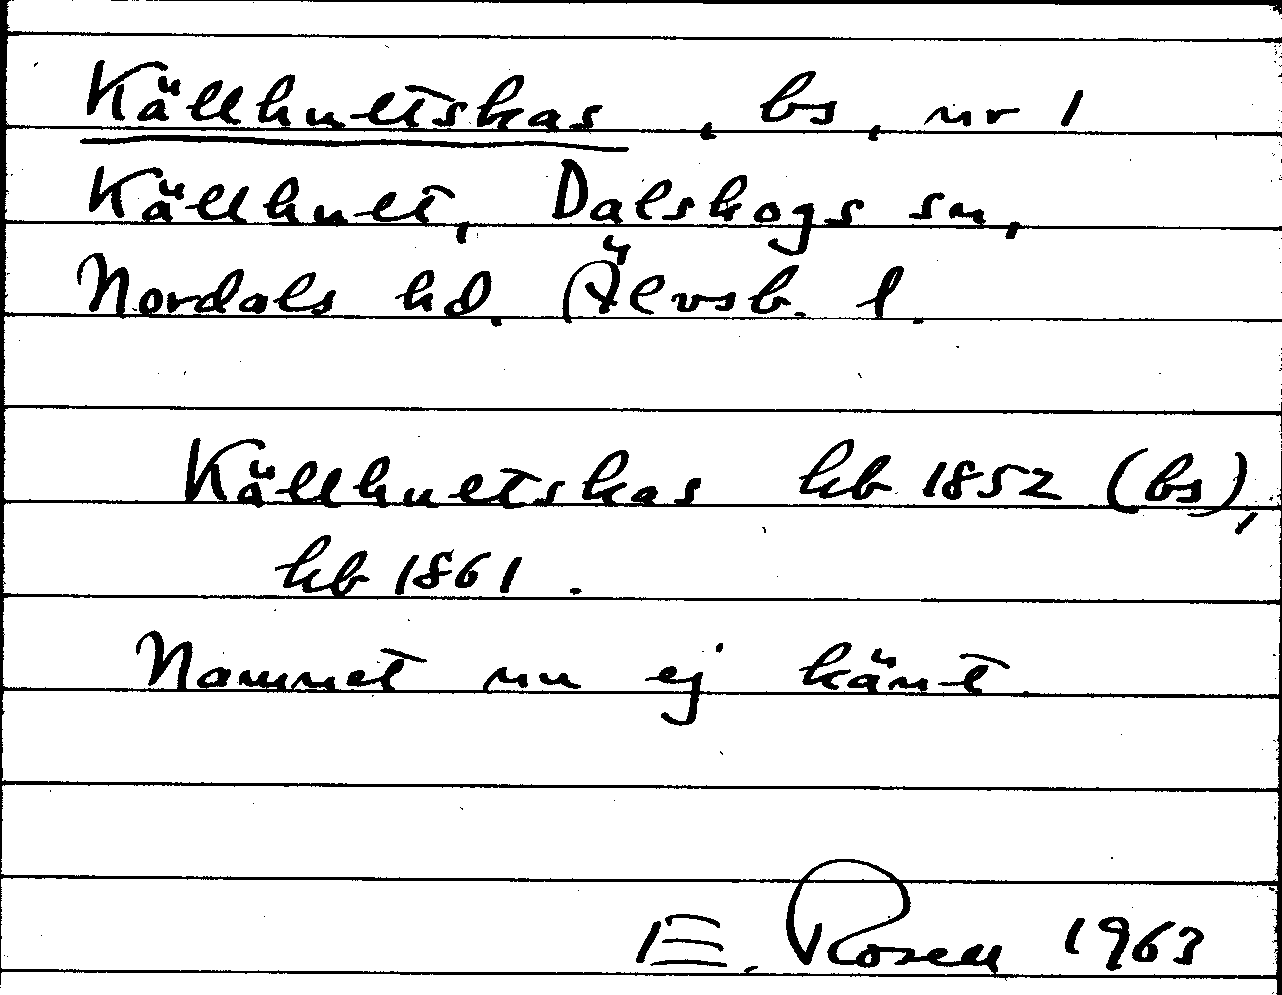 Källhultskas, bs, nr 1
Källhult, Dalskogs sn,
Nordals hd. Älvsb. l.
Källhultskas hb 1852 (bs),
hb 1861.
Namnet nu ej känt.
E. Rosell 1963